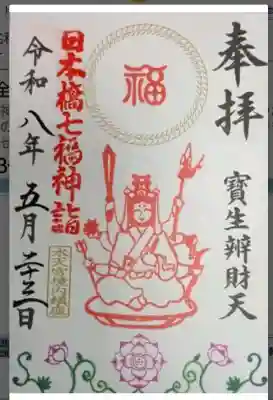 奉拝
寶生辨財天
福
日本橋七福神詣
水天宮境内鎮座
令和八年五月二十三日